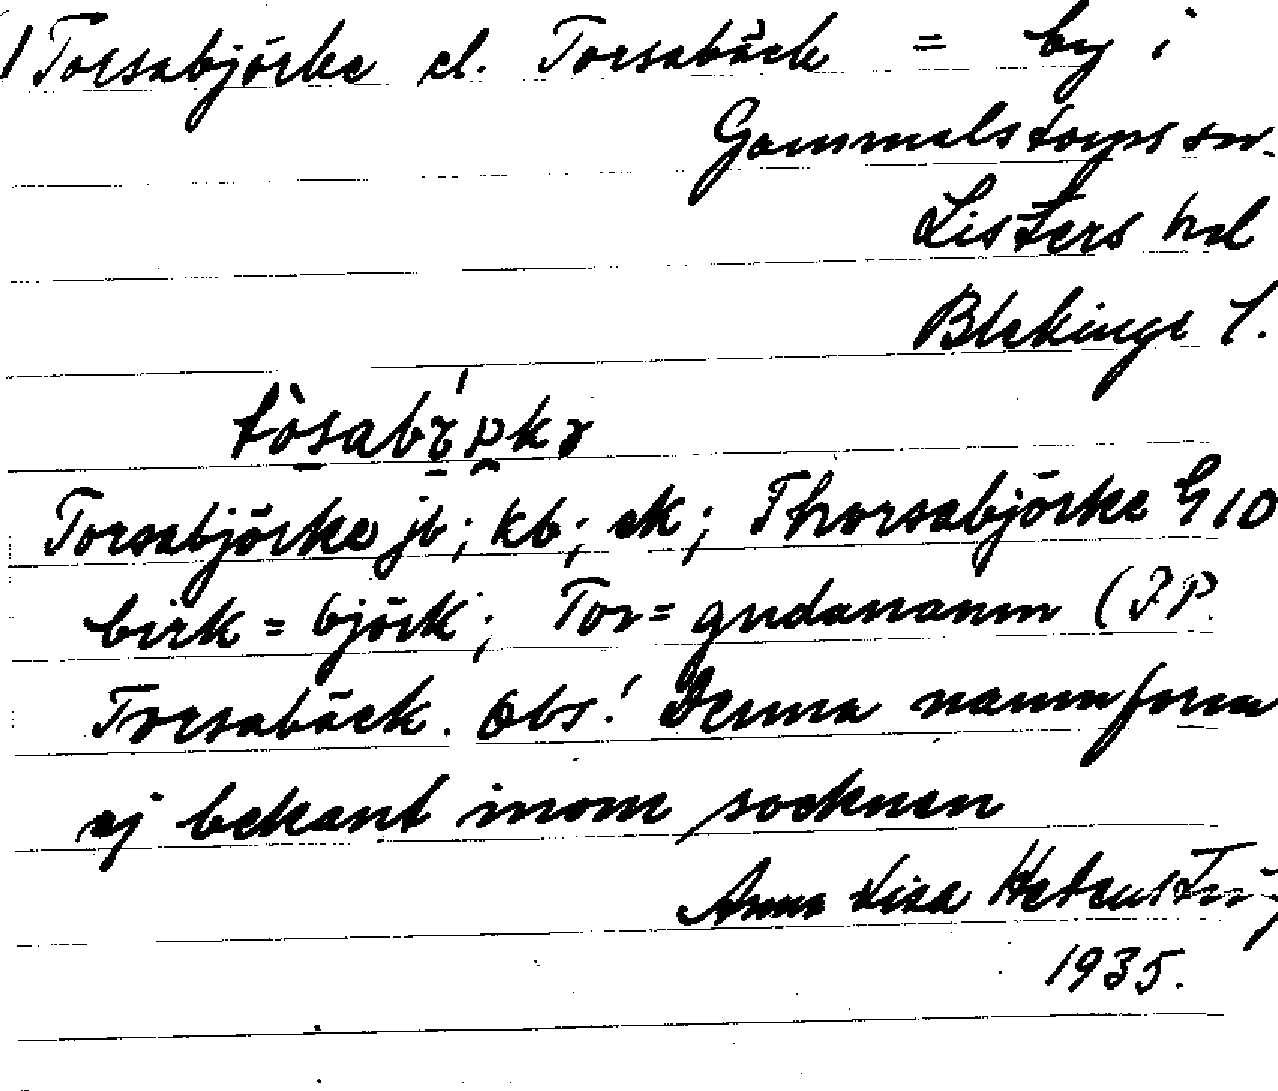 1) Torsabjörke el. Torsabäck = by i
Gammalstorps sn.
Listers hd
Blekinge l.
Torsabjörke jb; kb; ek; Thorsabjörke G 10
birk = björk; Tor = gudanamn (PP.
Torsabäck. Obs! Denna namnform
ej bekant inom socknen
Anna Lisa
1935.